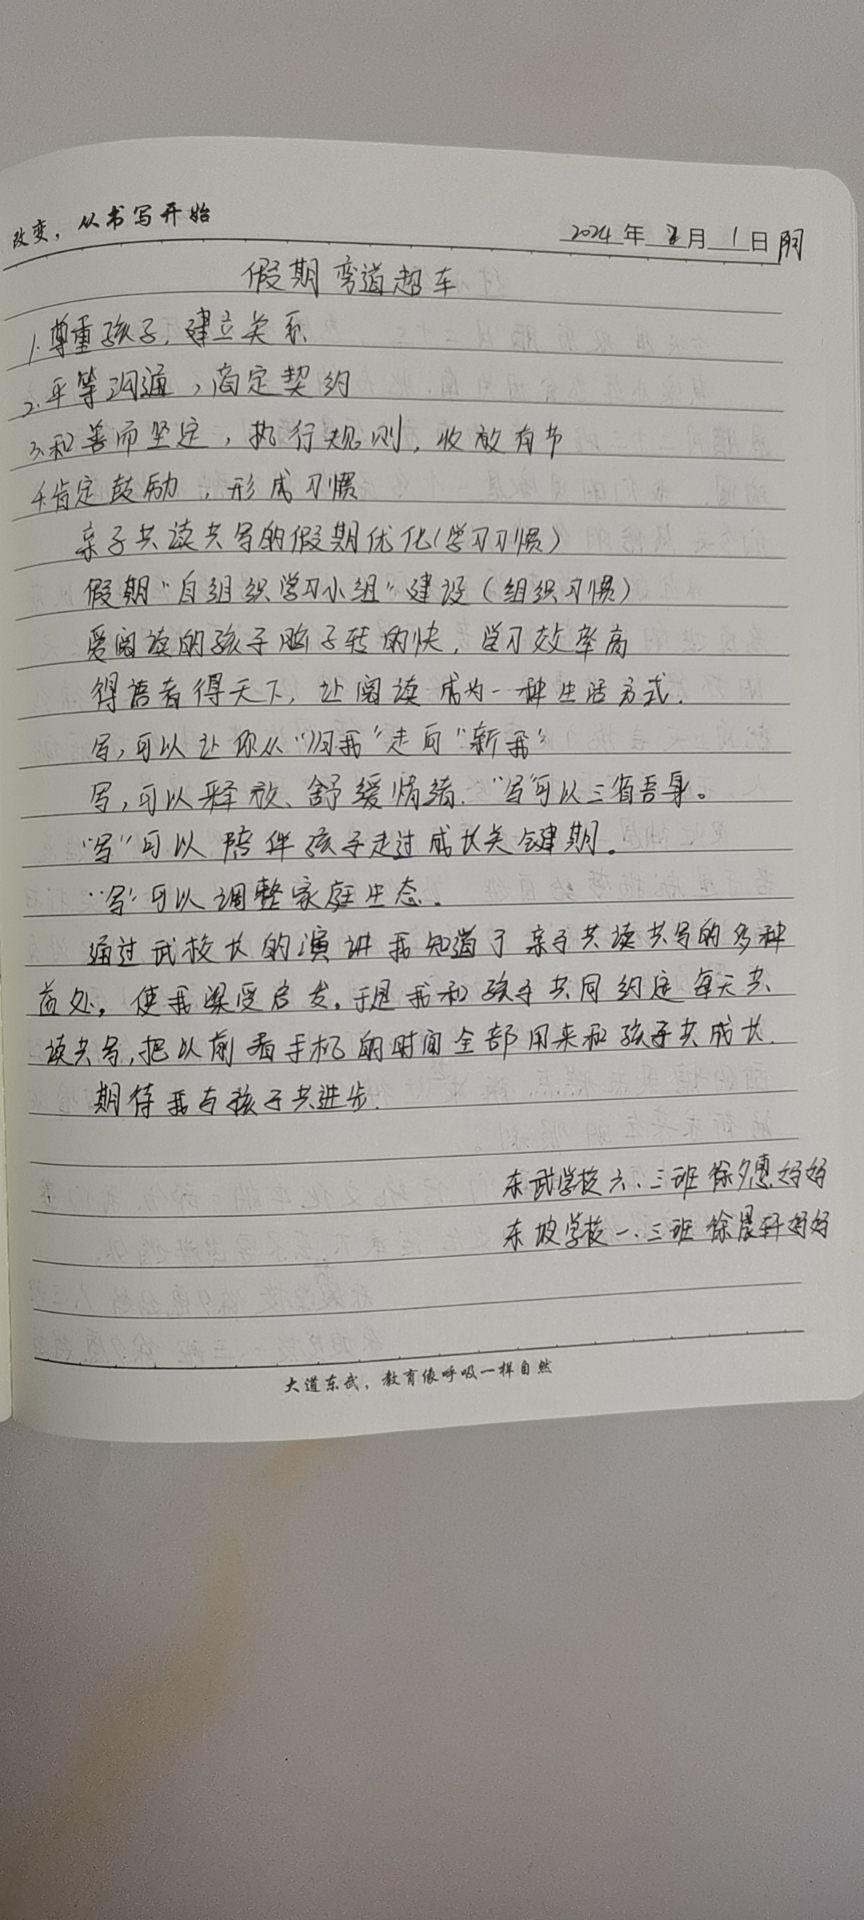 改变，从书写开始
2024年 月1日 阴
假期弯道超车
1.尊重孩子，建立关系
2.平等沟通，商定契约
3.和善而坚定，执行规则，收放有节
4.肯定鼓励，形成习惯
亲子共读共写的假期优化(学习习惯)
假期"自组织学习小组"建设(组织习惯)
爱阅读的孩子脑子转的快，学习效率高
得语者得天下，让阅读成为一种生活方式.
写，可以让你从"旧我"走向"新我"
写，可以释放、舒缓情绪."写"可以三省吾身。
"写"可以陪伴孩子走过成长关键期。
"写"可以调整家庭生态。
通过武校长的演讲我知道了亲子共读共写的多种
益处，使我深受启发，于是我和孩子共同约定每天共
读共写，把以前看手机的时间全部用来和孩子共成长.
期待我与孩子共进步.
东武学校六.三班徐夕惠妈妈
东坡学校一.三班徐晨轩妈妈
大道东武，教育像呼吸一样自然